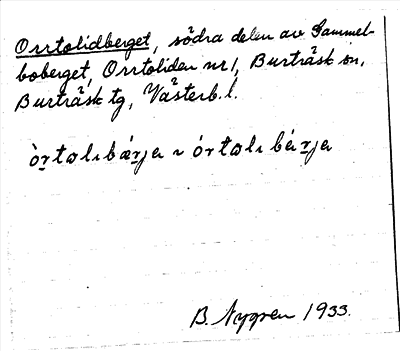 Orrtolidberget, södra delen av Gammel-
boberget, Orrtoliden nr 1, Burträsk sn,
Burträsk tg, Västerb. l.
òr̲tolıbær̲ja ~ órtolı bér̲ja
B. Nygren 1933.